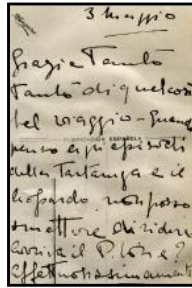 3 Maggio
Grazie Tanto
Tanto di quel così
bel viaggio - Quando
penso a gli episodi
della Tartaruga e il
leopardo non posso
smettere di ridere
arriva il P. ?
affettuosissimamente